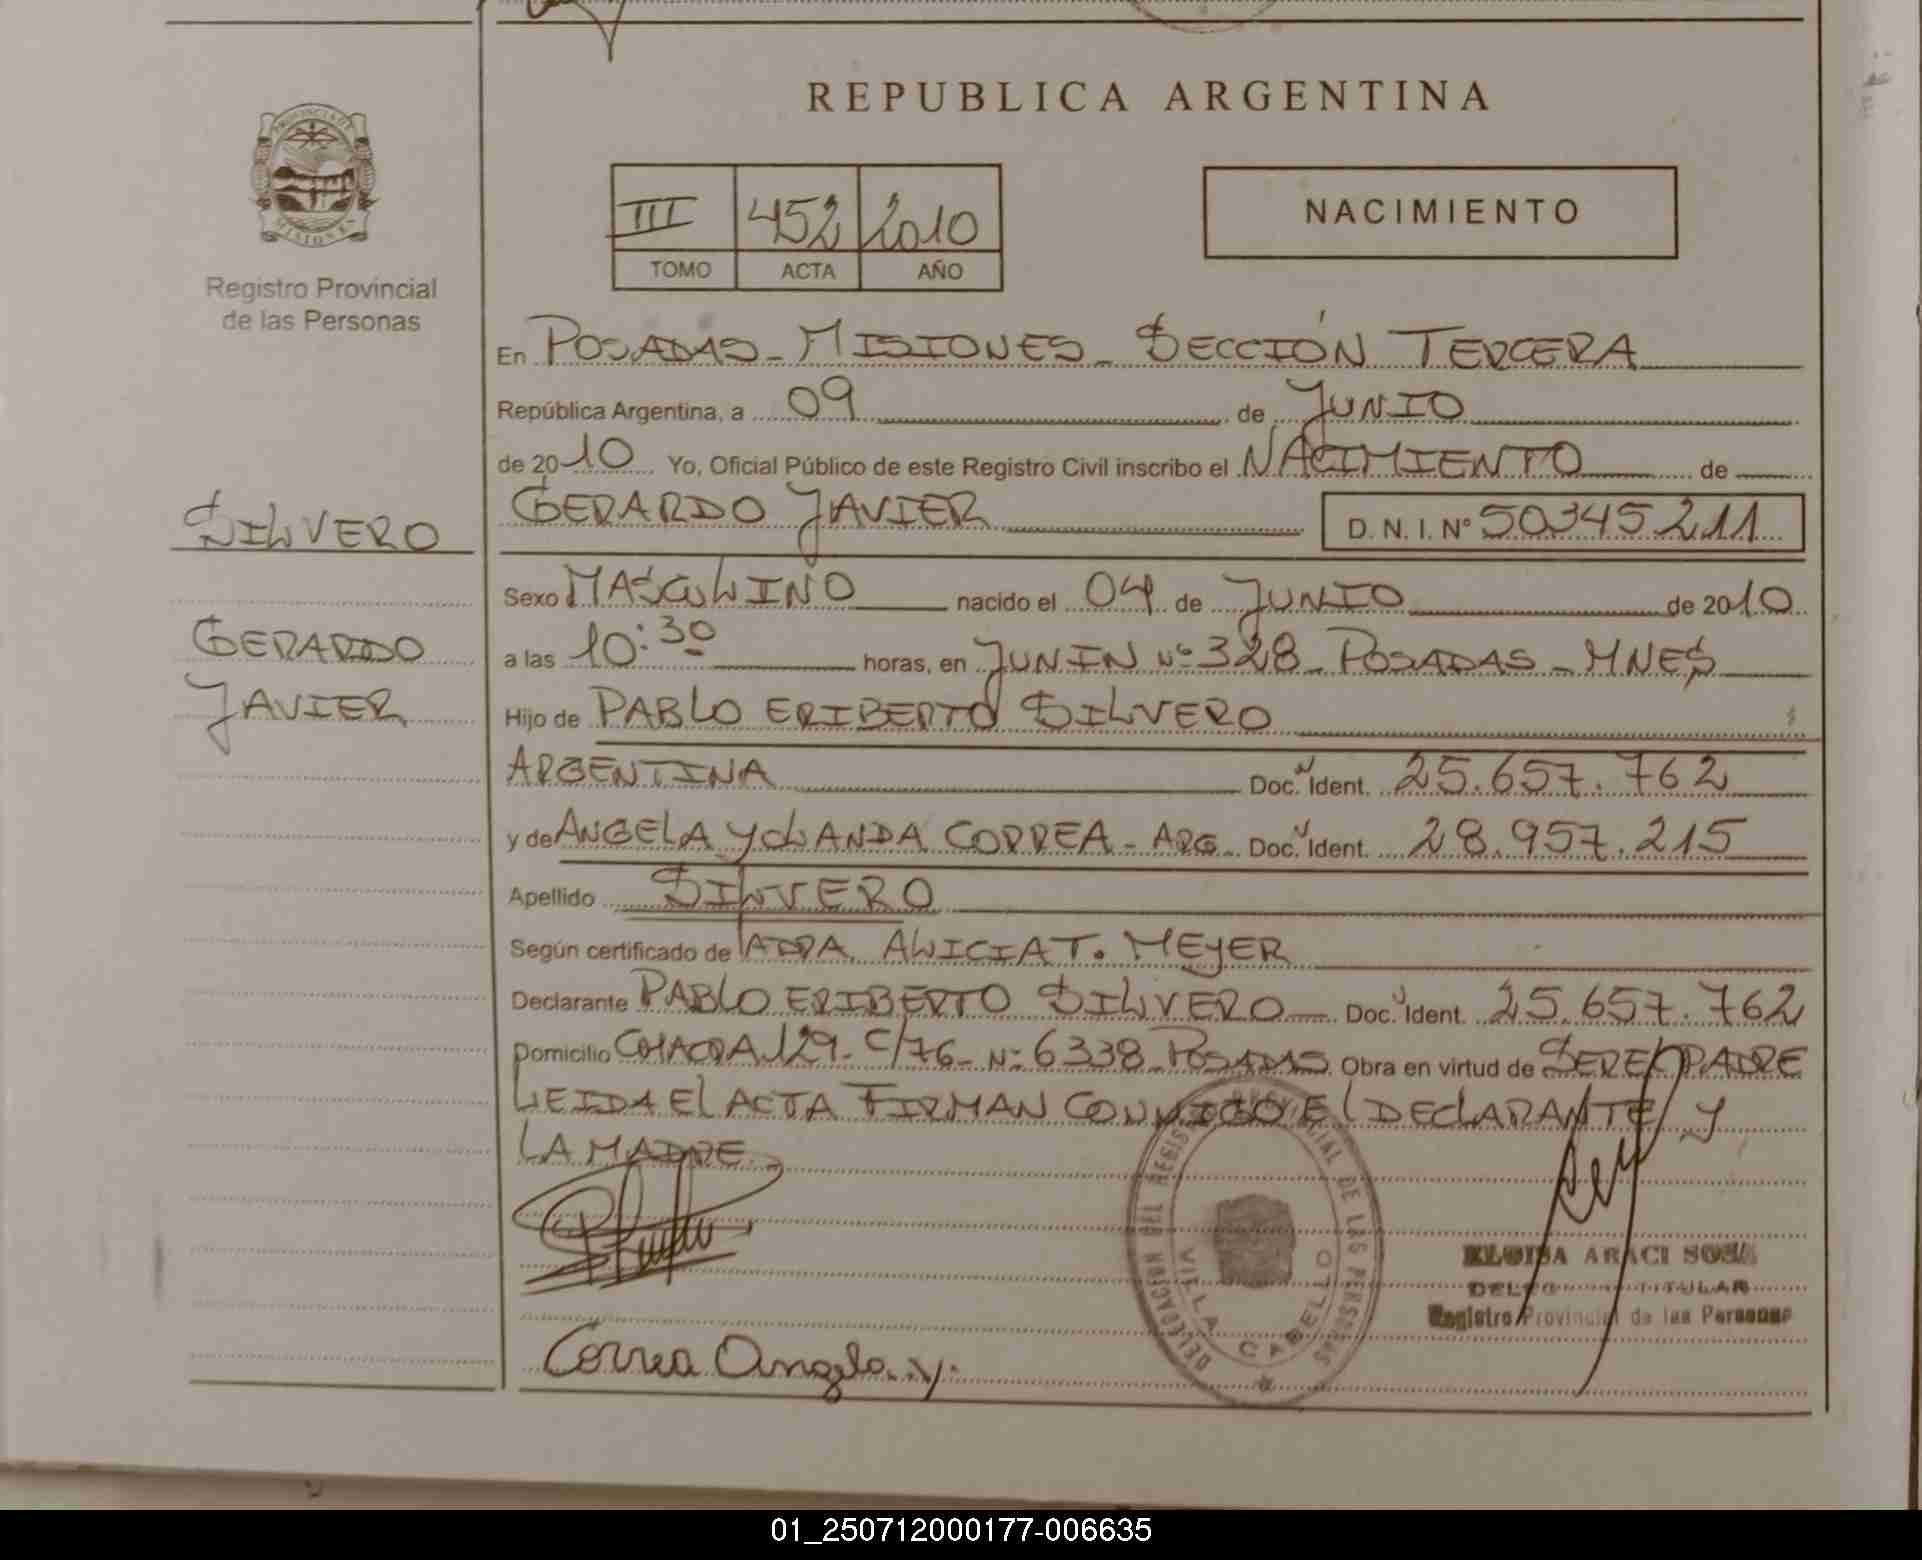 REPUBLICA ARGENTINA
PROVINCIA DE
MISIONES
Registro Provincial
de las Personas
III 452 2010
TOMO ACTA AÑO
NACIMIENTO
En POSADAS - MISIONES - SECCIÓN TERCERA
República Argentina, a 09 de JUNIO
de 2010 Yo, Oficial Público de este Registro Civil inscribo el NACIMIENTO de
SILVERO
GERARDO JAVIER D. N. I. Nº 50345211
Sexo MASCULINO nacido el 04 de JUNIO de 2010
GERARDO
a las 10:30 horas, en JUNIN Nº 328 - POSADAS - MNES
JAVIER
Hijo de PABLO ERIBERTO SILVERO
ARGENTINA Doc. Ident. 25.657.762
y de ANGELA YOLANDA CORREA - ARG. Doc. Ident. 28.957.215
Apellido SILVERO
Según certificado de ALICIA T. MEYER
Declarante PABLO ERIBERTO SILVERO Doc. Ident. 25.657.762
Domicilio CHACRA 129 - C/76 - Nº 6338 - POSADAS Obra en virtud de SER EL PADRE
LEIDA El ACTA FIRMAN CONMIGO El DECLARANTE Y
LA MADRE -
DELEGACION DEL REGISTRO PROVINCIAL DE LAS PERSONAS
VILLA CABELLO
ELOISA ARACI SOSA
TITULAR
Registro Provincial de las Personas
Correa Angela Y.
01_250712000177-006635